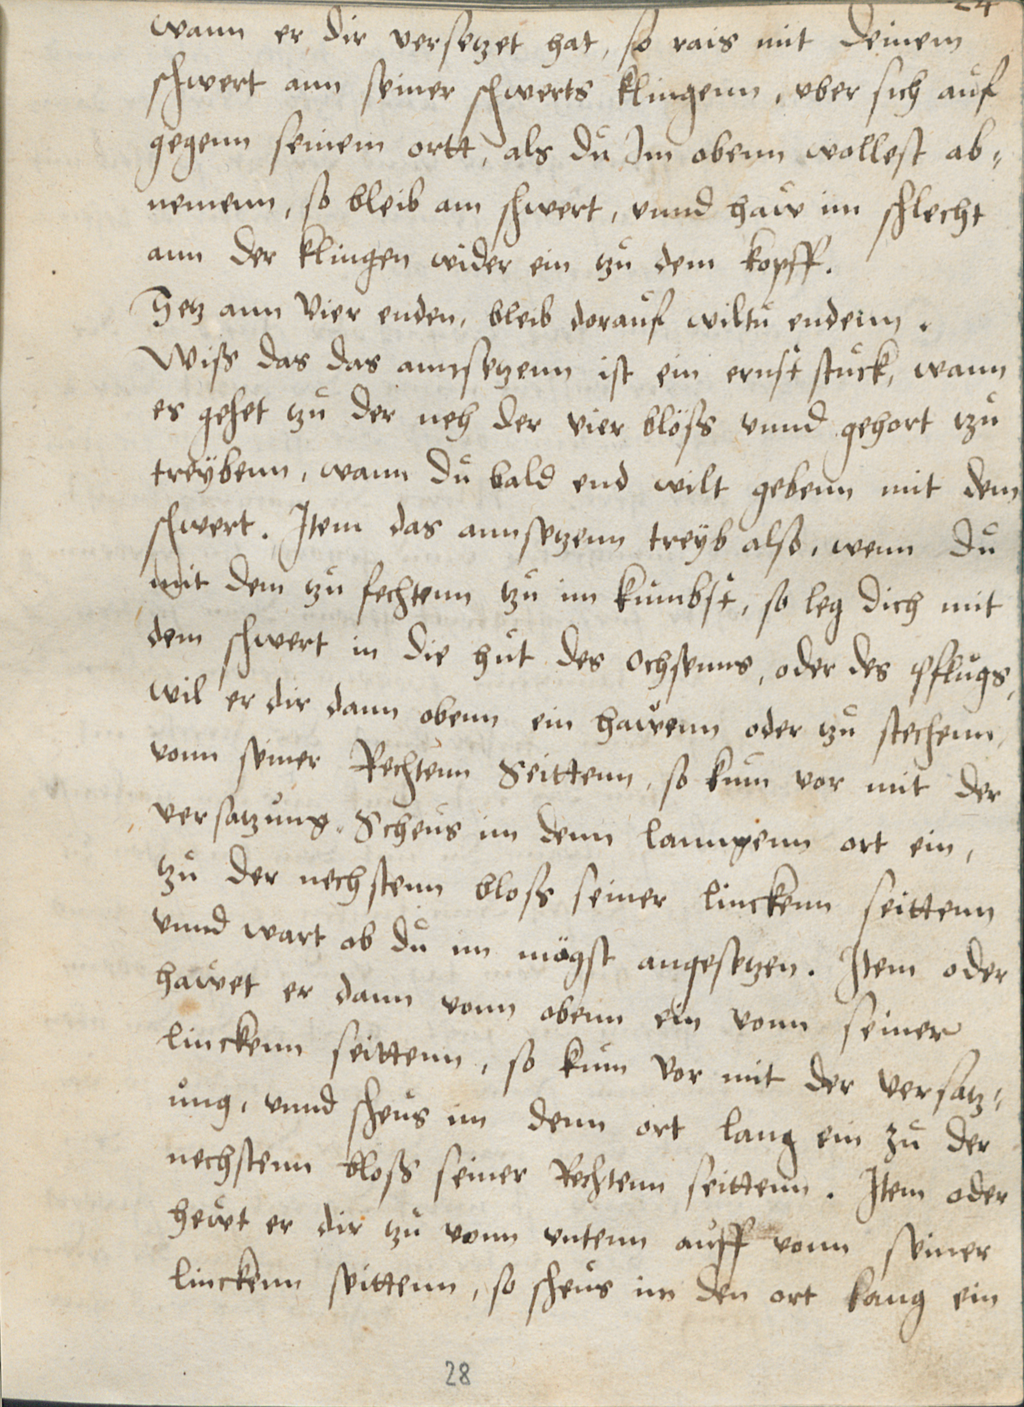 24
wann er dir versetzet hat, so rais mit deinem
schwert ann seiner schwerts klingenn, vber sich auf
gegenn seinem ortt, als du Im obenn wollest ab-
nemenn, so bleib am schwert, vnnd haw im schlecht
ann der klingen wider ein tzu dem kopff.
Setz ann Vier enden, bleib dorauf wiltu endenn.
Wiss das das annsetzenn ist ein ernst stuck, wann
es gehet tzu der neh der vier blöss vnnd gehort tzu
treÿbenn, wann du bald end wilt gebenn mit dem
schwert. Item das annsetzenn treÿb also, wenn du
mit dem tzu fechtenn tzu im kumbst, so leg dich mit
dem schwert in die hut des ochsenns, oder des pflugs,
wil er dir dann obenn ein hawenn oder tzu stechenn,
vonn seiner Rechtenn Seittenn, so kum vor mit der
versatzung. Scheus im denn lanngenn ort ein,
tzu der nechstenn bloss seiner linckenn seittenn
vnnd wart ob du im mögst angesetzen. Item oder
hawet er dann vonn obenn ein vonn seiner
linckenn seittenn, so kum Vor mit der versatz-
ung, vnnd scheus im denn ort lang ein zu der
nechstenn bloss seiner Rechtenn seittenn. Item oder
hewt er dir tzu vonn vntenn auff vonn seiner
linckenn seittenn, so scheus im den ort lang ein
28